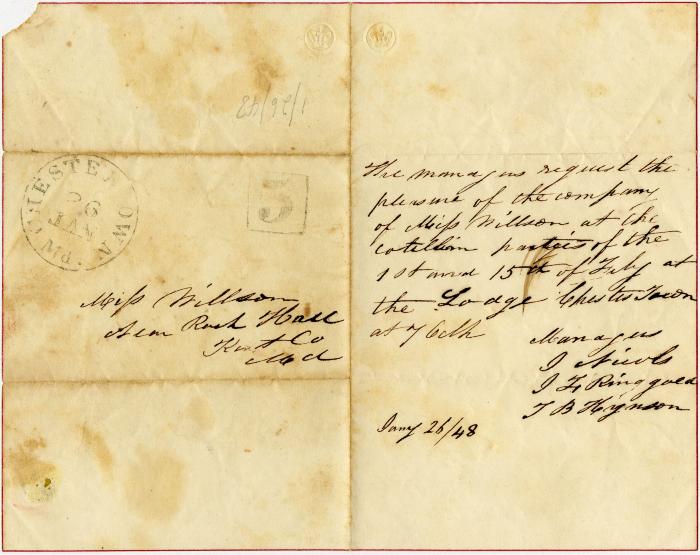 1/26/48
CHESTERTOWN Md.
26
JAN
5
Miss Willson
Near Rock Hall
Kent Co
Md
The managers request the
pleasure of the company
of Miss Willson at the
cotillion parties of the
1st and 15th of July at
the Lodge Chester Town
at 7 Clk
Managers
J Nicols
J F Ringgold
T B Hynson
Jany 26/48